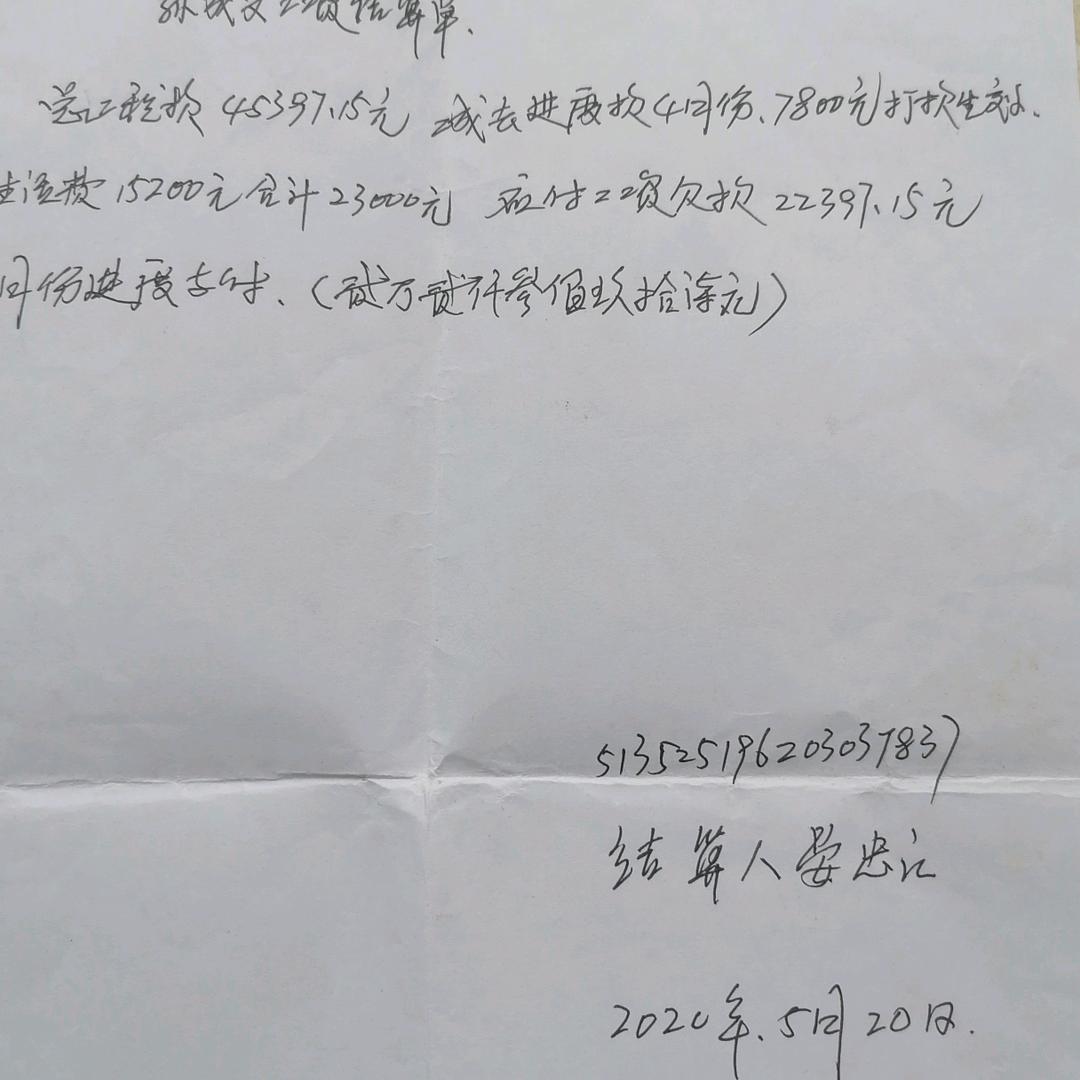 孙成文工资结算单.
总工程款45397.15元 减去进度款4月份、7800元打款生活、
生活费15200元合计23000元 应付工资欠款22397.15元
月份进度支付、(贰万贰仟叁佰玖拾柒元)
513525196203037837
结算人 晏忠江
2020年、5月20日.